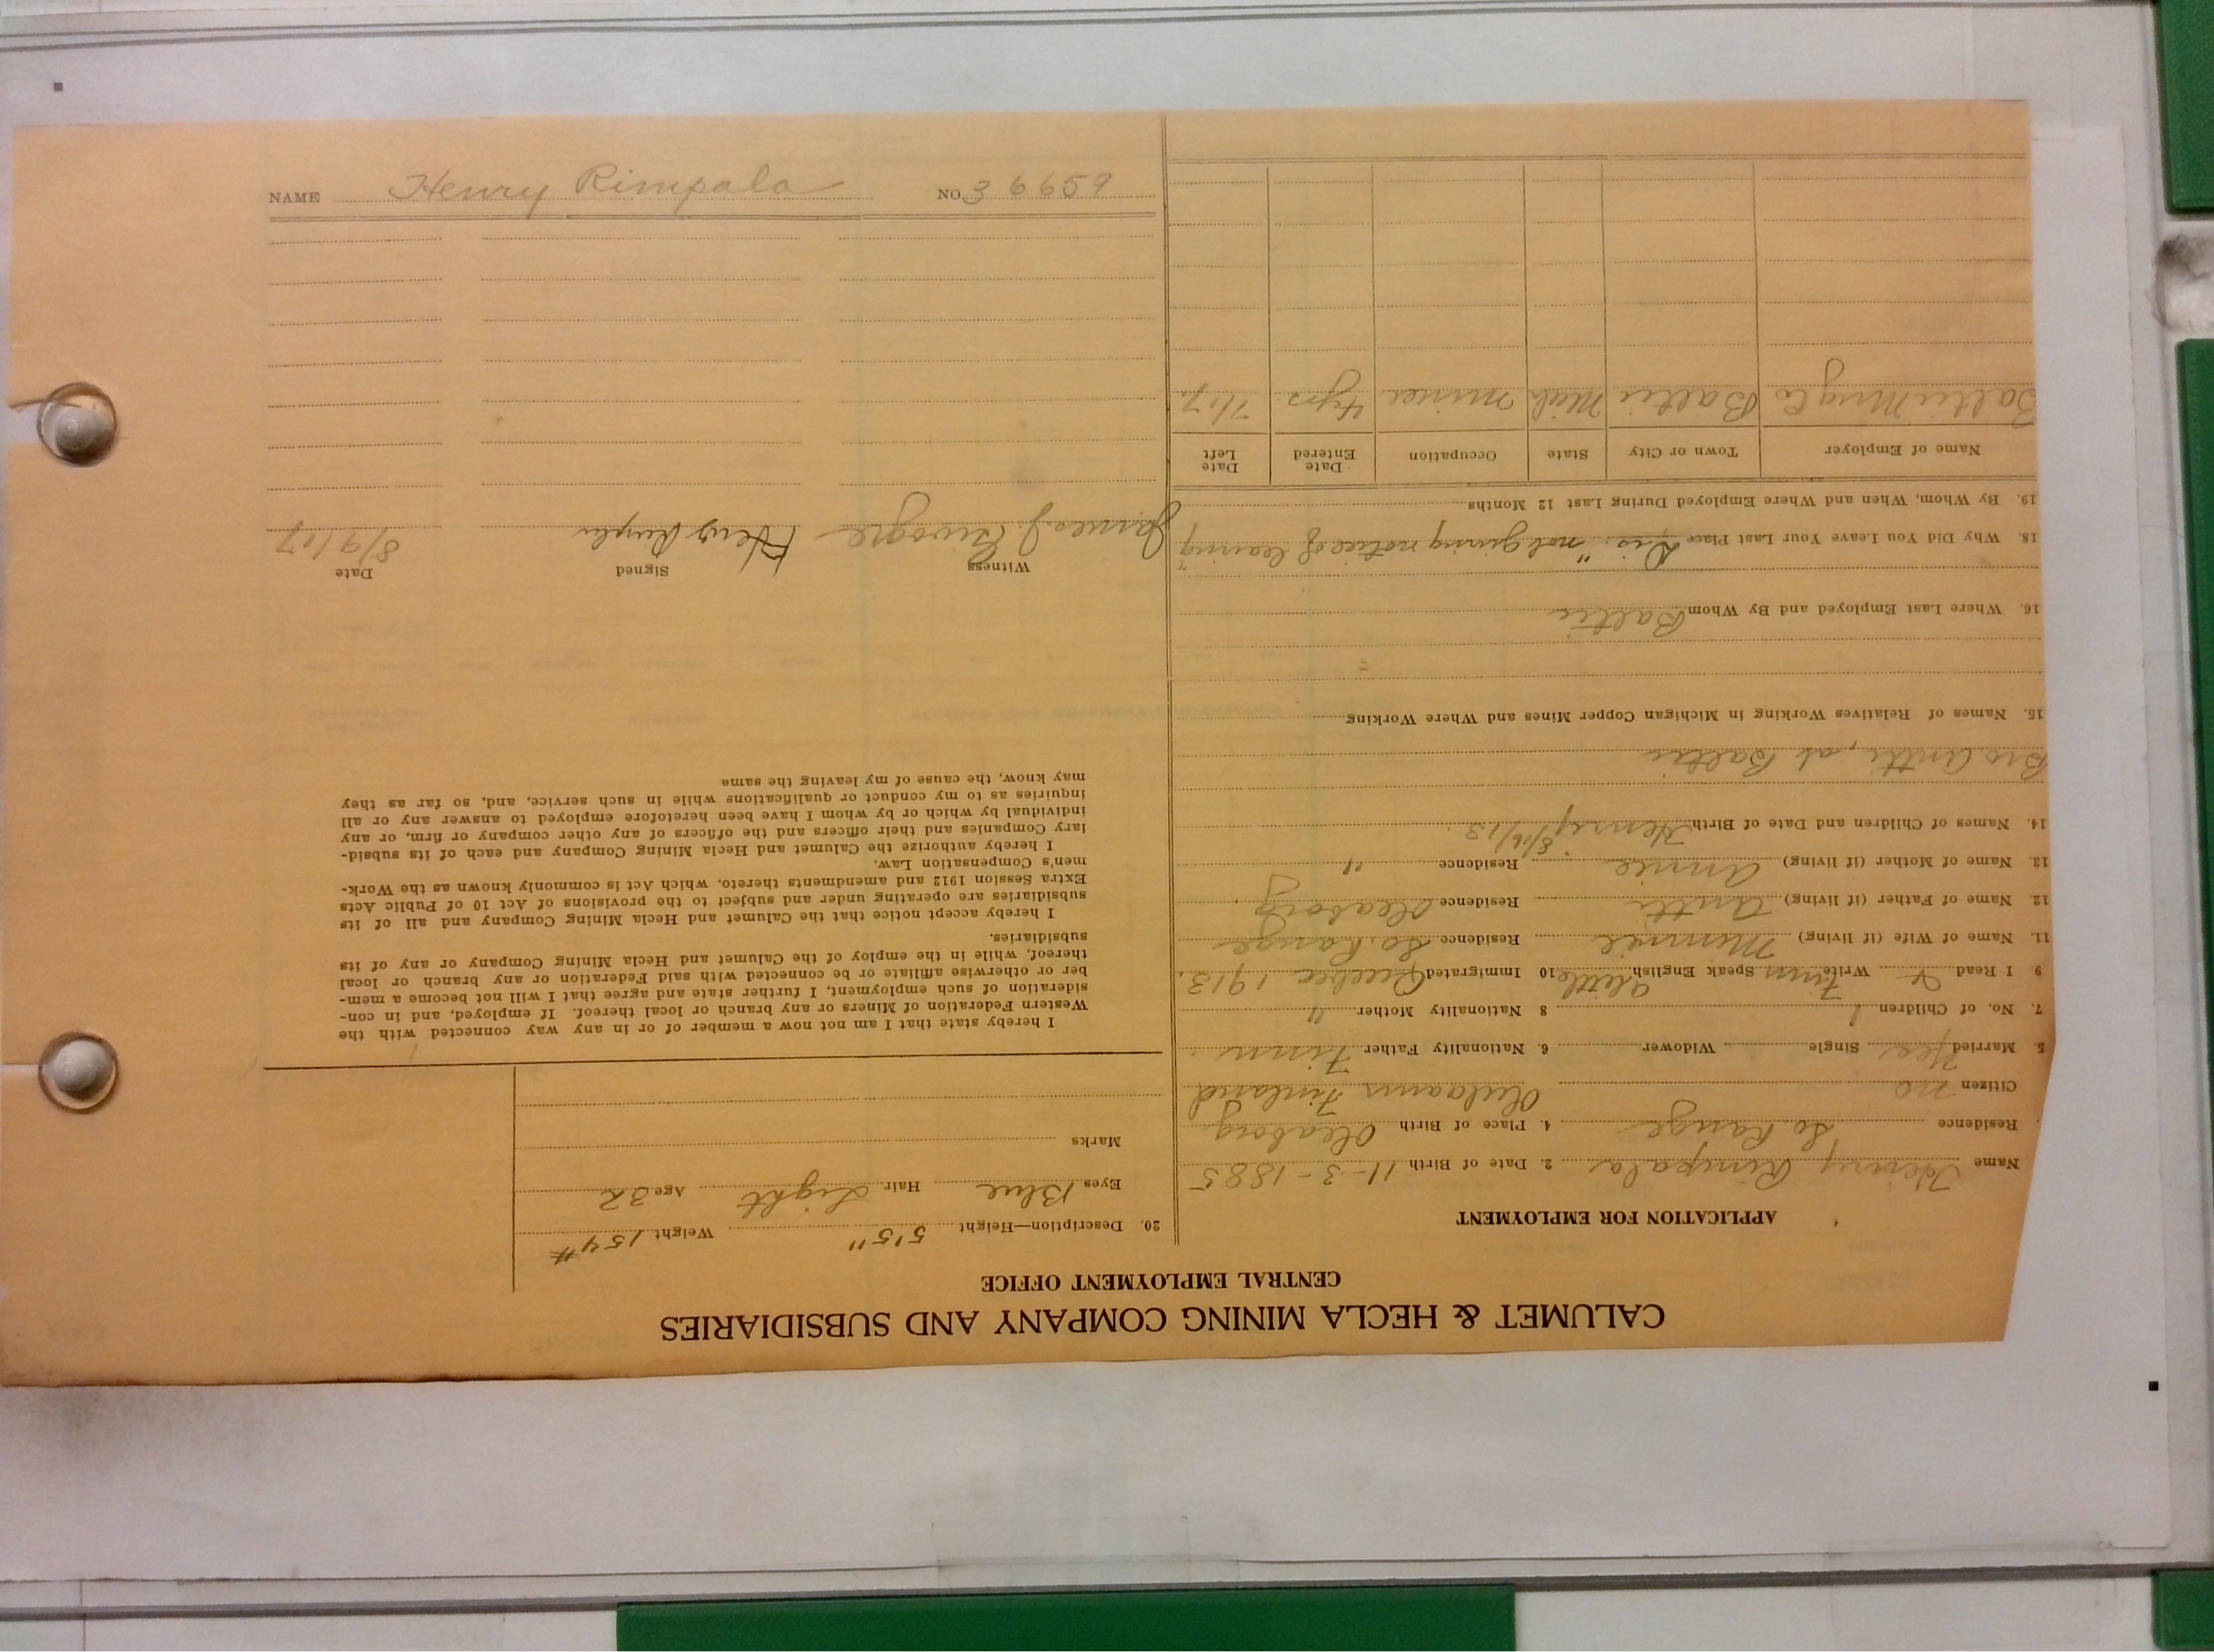 CALUMET & HECLA MINING COMPANY AND SUBSIDIARIES
CENTRAL EMPLOYMENT OFFICE
APPLICATION FOR EMPLOYMENT
Name Henry Rimpala 2. Date of Birth 11-3-1885
Residence So. Range 4. Place of Birth Uleaborg
Citizen no Oulaann Finland
5. Married Yes Single Widower 6. Nationality Father Finn
7. No. of Children 1 8 Nationality Mother "
9 I Read & Write Finn Speak English little 10 Immigrated Quebec 1913.
11. Name of Wife (if living) Minnie Residence So. Range
12. Name of Father (if living) Antti Residence Uleaborg
13. Name of Mother (if living) Annie Residence "
14. Names of Children and Date of Birth Henry 8/16/13.
15. Names of Relatives Working in Michigan Copper Mines and Where Working
Bro. Antti, at Baltic
16. Where Last Employed and By Whom Baltic
18. Why Did You Leave Your Last Place Dis. "not giving notice of leaving"
19. By Whom, When and Where Employed During Last 12 Months
Name of Employer Town or City State Occupation Date Entered Date Left
Baltic Mng Co Baltic Mich miner 4 yrs. 7/17.
20. Description—Height 5'5" Weight 154#
Eyes Blue Hair Light Age 32
Marks
I hereby state that I am not now a member of or in any way connected with the
Western Federation of Miners or any branch or local thereof. If employed, and in con-
sideration of such employment, I further state and agree that I will not become a mem-
ber or otherwise affiliate or be connected with said Federation or any branch or local
thereof, while in the employ of the Calumet and Hecla Mining Company or any of its
subsidiaries.
I hereby accept notice that the Calumet and Hecla Mining Company and all of its
subsidiaries are operating under and subject to the provisions of Act 10 of Public Acts
Extra Session 1912 and amendments thereto, which Act is commonly known as the Work-
men's Compensation Law.
I hereby authorize the Calumet and Hecla Mining Company and each of its subsid-
iary Companies and their officers and the officers of any other company or firm, or any
individual by which or by whom I have been heretofore employed to answer any or all
inquiries as to my conduct or qualifications while in such service, and, so far as they
may know, the cause of my leaving the same
Witness Signed Date
James J. Henry 8/9/17
NAME Henry Rimpala NO. 36659